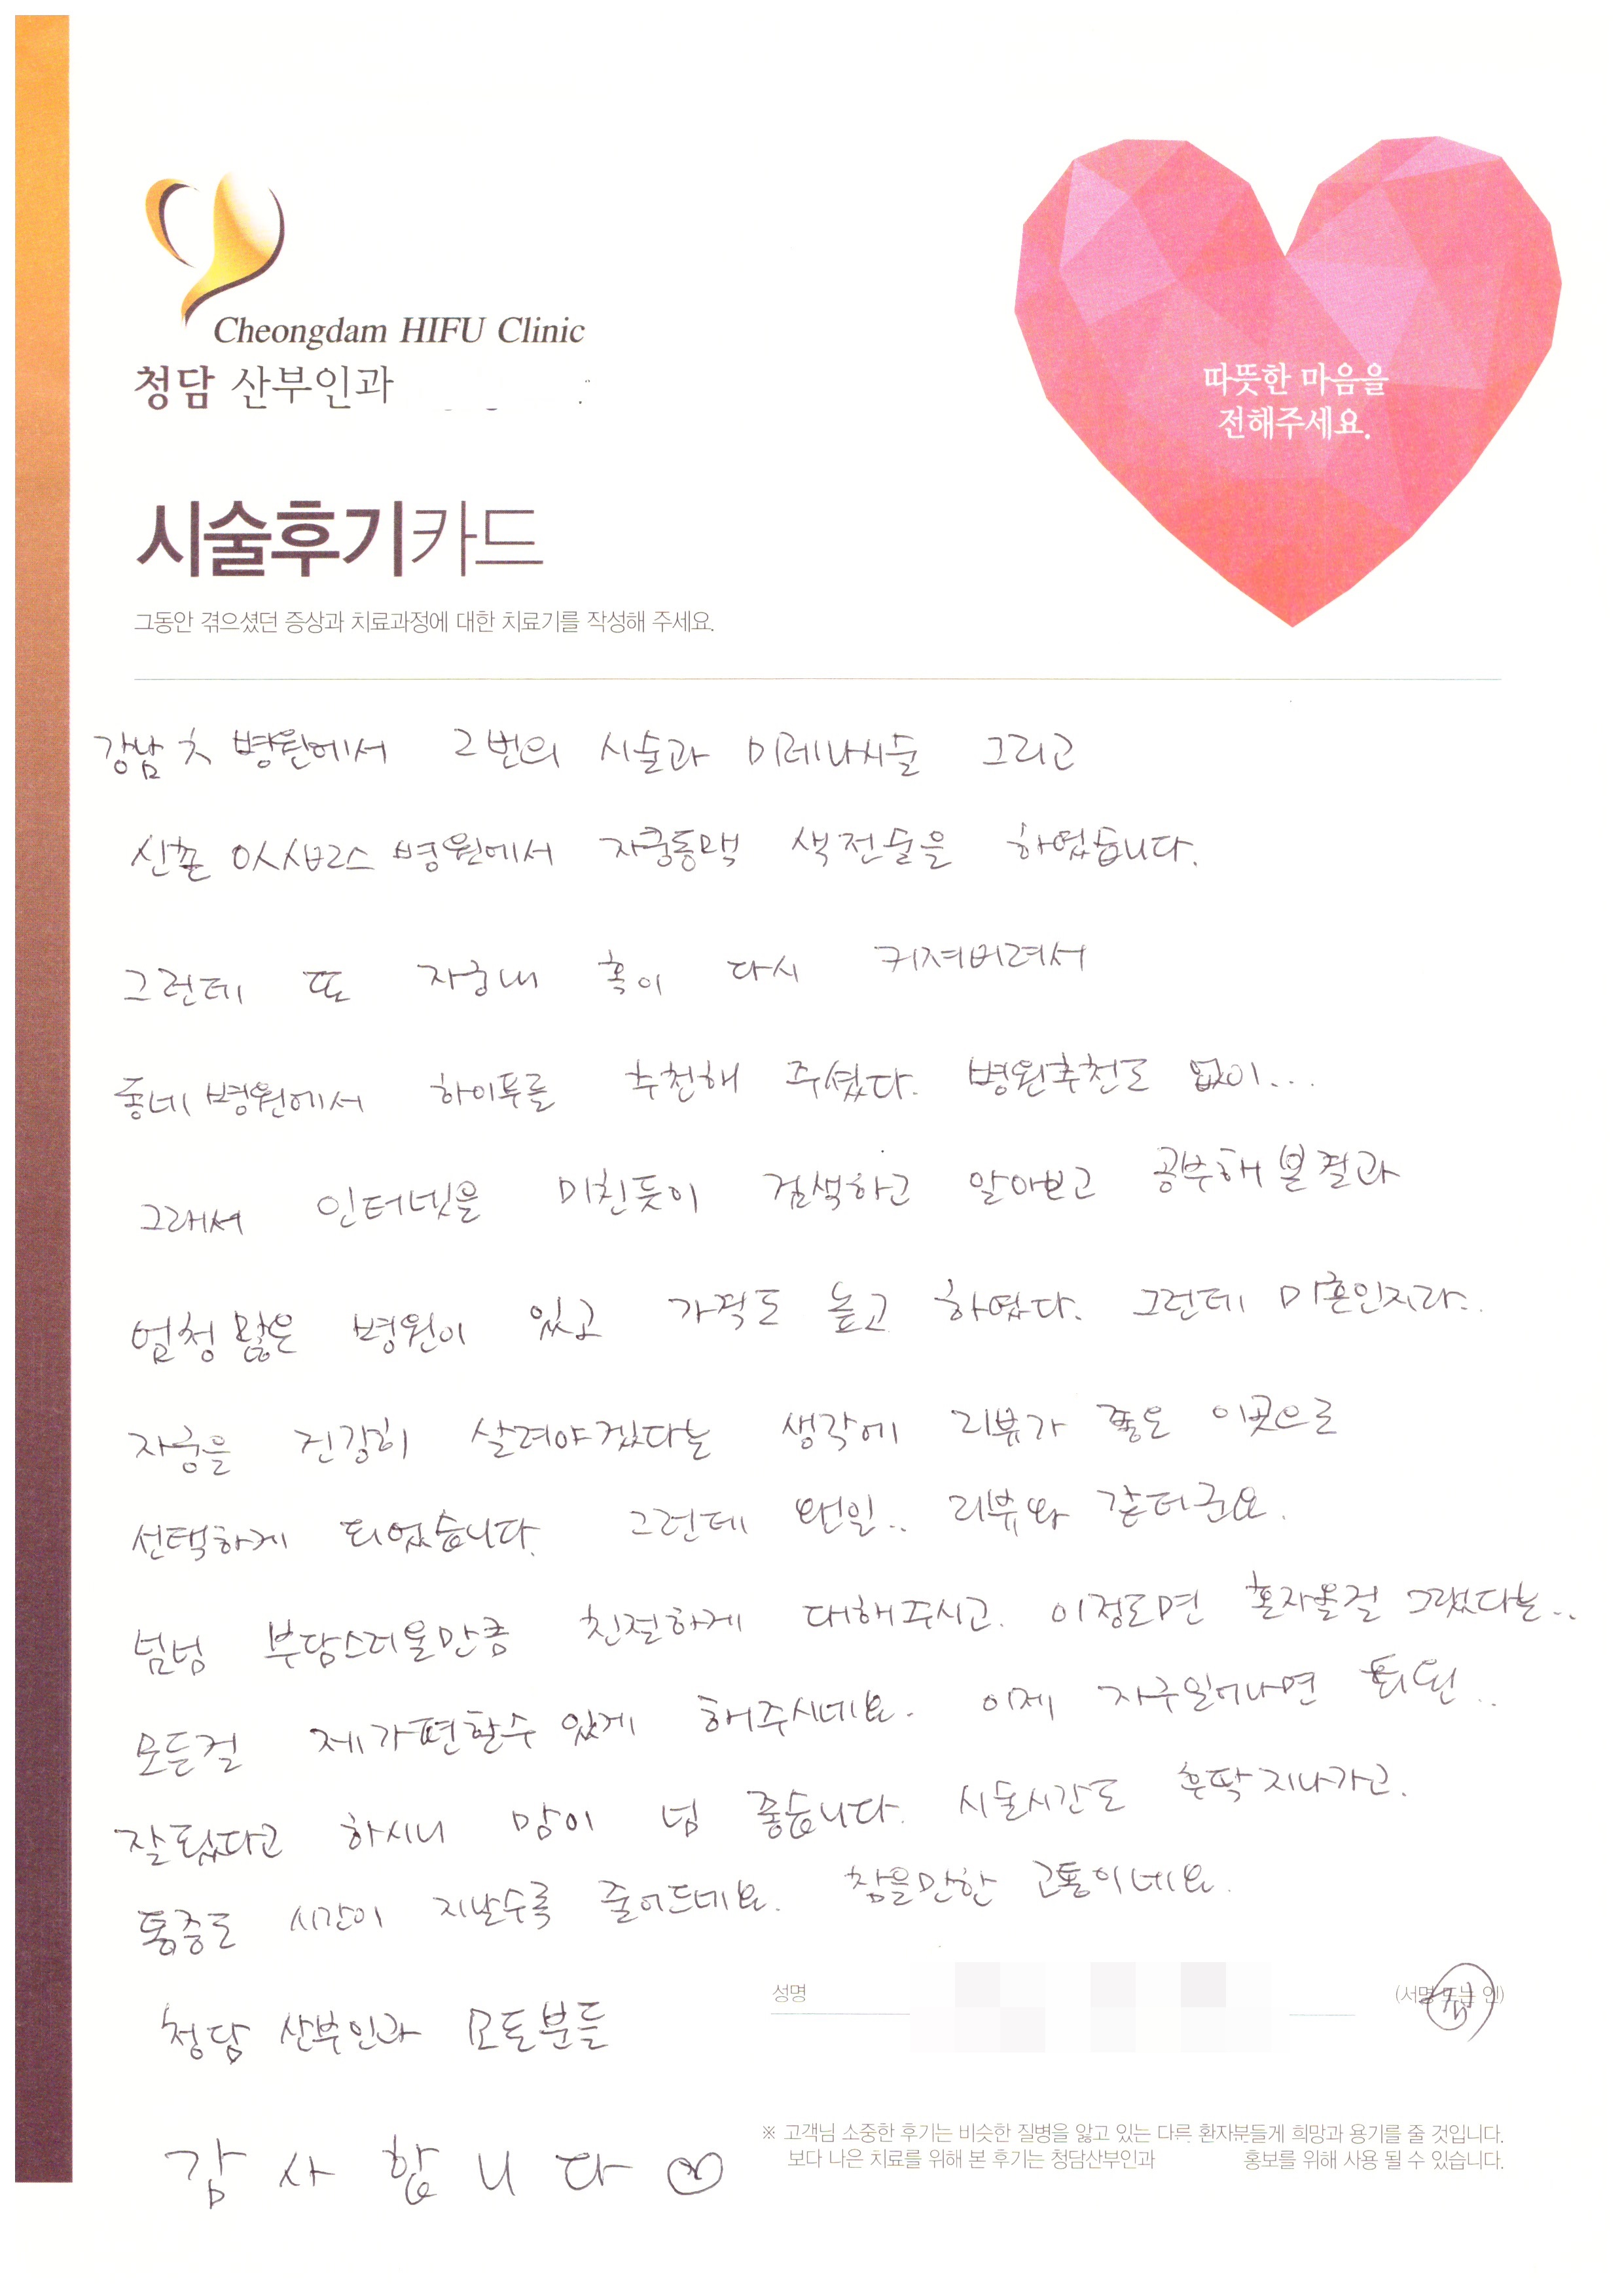 Cheongdam HIFU Clinic
청담 산부인과
따뜻한 마음을
전해주세요.
시술후기카드
그동안 겪으셨던 증상과 치료과정에 대한 치료기를 작성해 주세요.
강남 차 병원에서 2번의 시술과 미레나시술 그리고
신촌 병원에서 자궁동맥 색전술을 하였습니다.
그런데 또 자궁내 혹이 다시 커져버려서
동네병원에서 하이푸를 추천해 주셨다. 병원추천도 없이...
그래서 인터넷을 미친듯이 검색하고 알아보고 공부해 본 결과
엄청 많은 병원이 있고 가격도 높고 하였다. 그런데 미혼인지라..
자궁을 건강히 살려야겠다는 생각에 리뷰가 좋은 이곳으로
선택하게 되었습니다. 그런데 왠일.. 리뷰와 같더군요.
넘넘 부담스러울만큼 친절하게 대해주시고. 이정도면 혼자올걸 그랬다는..
모든걸 제가편할수 있게 해주시네요. 이제 자구일어나면 퇴원..
잘됐다고 하시니 맘이 넘 좋습니다. 시술시간도 후딱지나가고.
통증도 시간이 지날수록 줄어드네요. 참을만한 고통이네요.
성명
(서명 또는 인)
청담 산부인과 모든분들
감사합니다
※ 고객님 소중한 후기는 비슷한 질병을 앓고 있는 다른 환자분들게 희망과 용기를 줄 것입니다.
보다 나은 치료를 위해 본 후기는 청담산부인과 홍보를 위해 사용 될 수 있습니다.